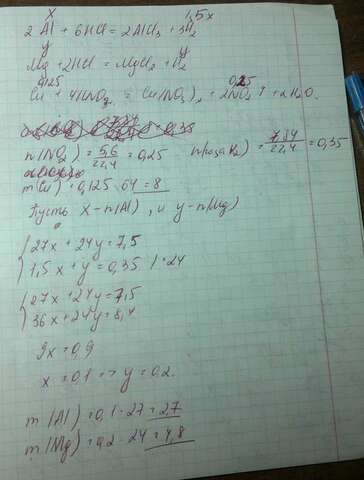 x 1,5x
2Al + 6HCl = 2AlCl₃ + 3H₂
y y
Mg + 2HCl = MgCl₂ + H₂
0,125 0,25
Cu + 4HNO₃ = Cu(NO₃)₂ + 2NO₂↑ + 2H₂O.
= 0,35
n(NO₂) = 5,6/22,4 = 0,25 n(газа H₂) = 7,84/22,4 = 0,35
m(Cu) = 0,125 · 64 = 8
Пусть x - n(Al), и y - n(Mg)
27x + 24y = 7,5
1,5x + y = 0,35 | · 24
27x + 24y = 7,5
36x + 24y = 8,4
9x = 0,9
x = 0,1 => y = 0,2.
m(Al) = 0,1 · 27 = 27
m(Mg) = 0,2 · 24 = 4,8